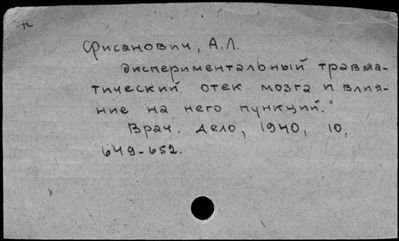 Фисанович, А.Л.
Экспериментальный травма-
тический отек мозга и влия-
ние на него пункций."
Врач. дело, 1940, 10,
649-652.